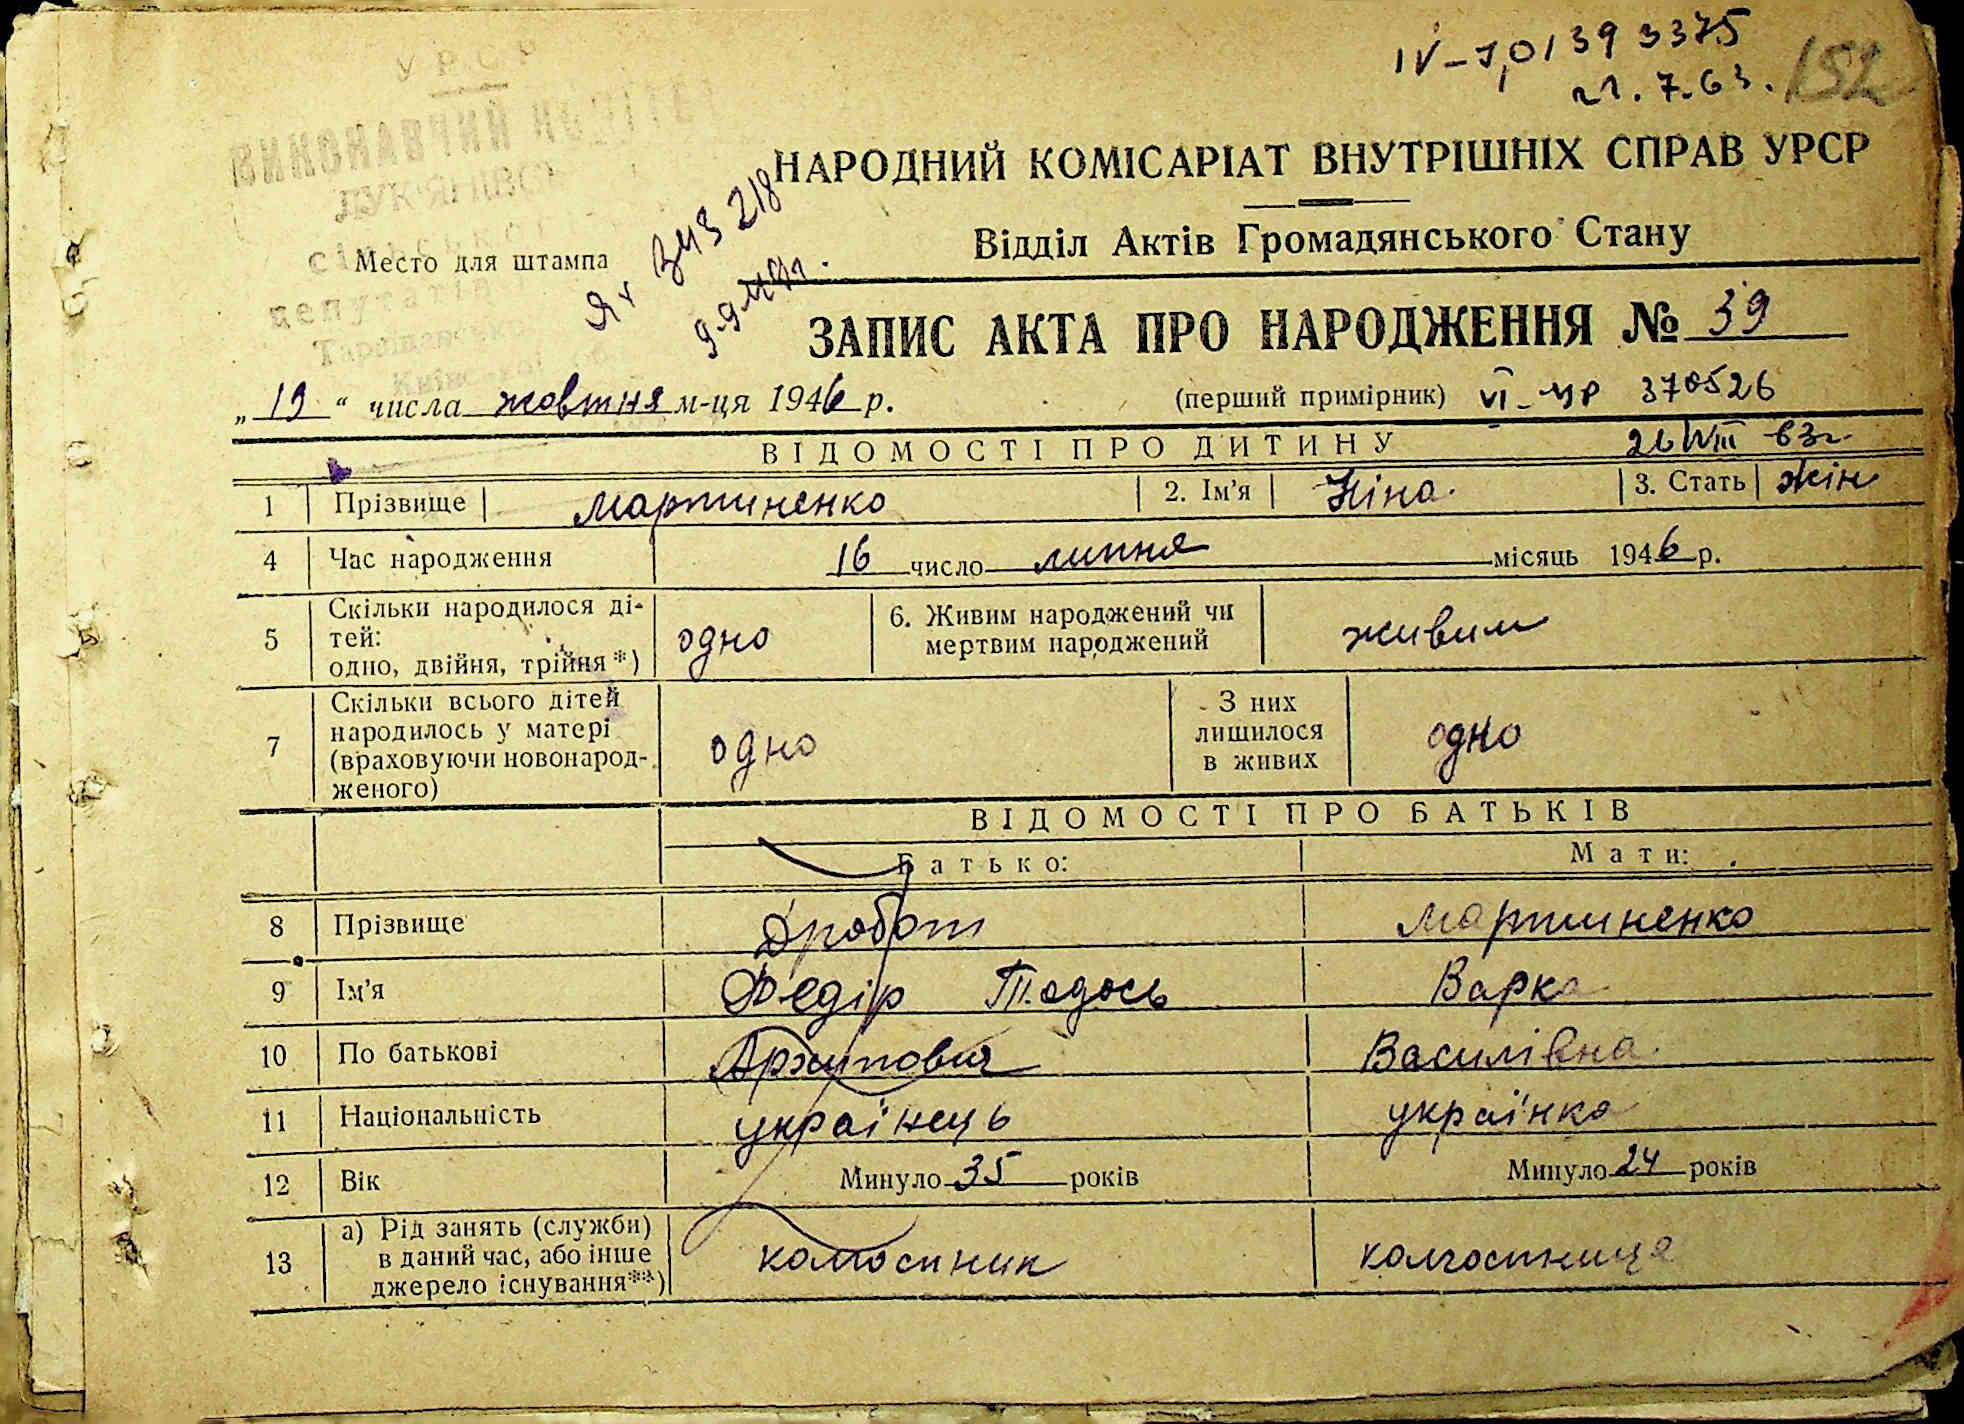 УРСР
ВИКОНАВЧИЙ КОМІТЕТ
ЛУК'ЯНІВСЬ
сільської
депутатів
IV-
39 3375
21.7.63.
152
НАРОДНИЙ КОМІСАРІАТ ВНУТРІШНІХ СПРАВ УРСР
Відділ Актів Громадянського Стану
Место для штампа
343218
ЗАПИС АКТА ПРО НАРОДЖЕННЯ № 39
„19“ числа жовтня м-ця 1946 р.
(перший примірник) VI-УР 370526
26 VIII 63г.
ВІДОМОСТІ ПРО ДИТИНУ
1 Прізвище Мартиненко 2. Ім'я Ніна. 3. Стать жін
4 Час народження 16 число липня місяць 1946 р.
5 Скільки народилося ді-
тей:
одно, двійня, трійня*) одно
6. Живим народжений чи
мертвим народжений живим
7 Скільки всього дітей
народилось у матері
(враховуючи новонарод-
женого) одно
З них
лишилося
в живих одно
ВІДОМОСТІ ПРО БАТЬКІВ
Батько: Мати:
8 Прізвище Дробот Мартиненко
9 Ім'я Федір Тодось Варка
10 По батькові Архипович Василівна
11 Національність українець українка
12 Вік Минуло 35 років Минуло 24 років
13 а) Рід занять (служби)
в даний час, або інше
джерело існування**) колгоспник колгоспниця